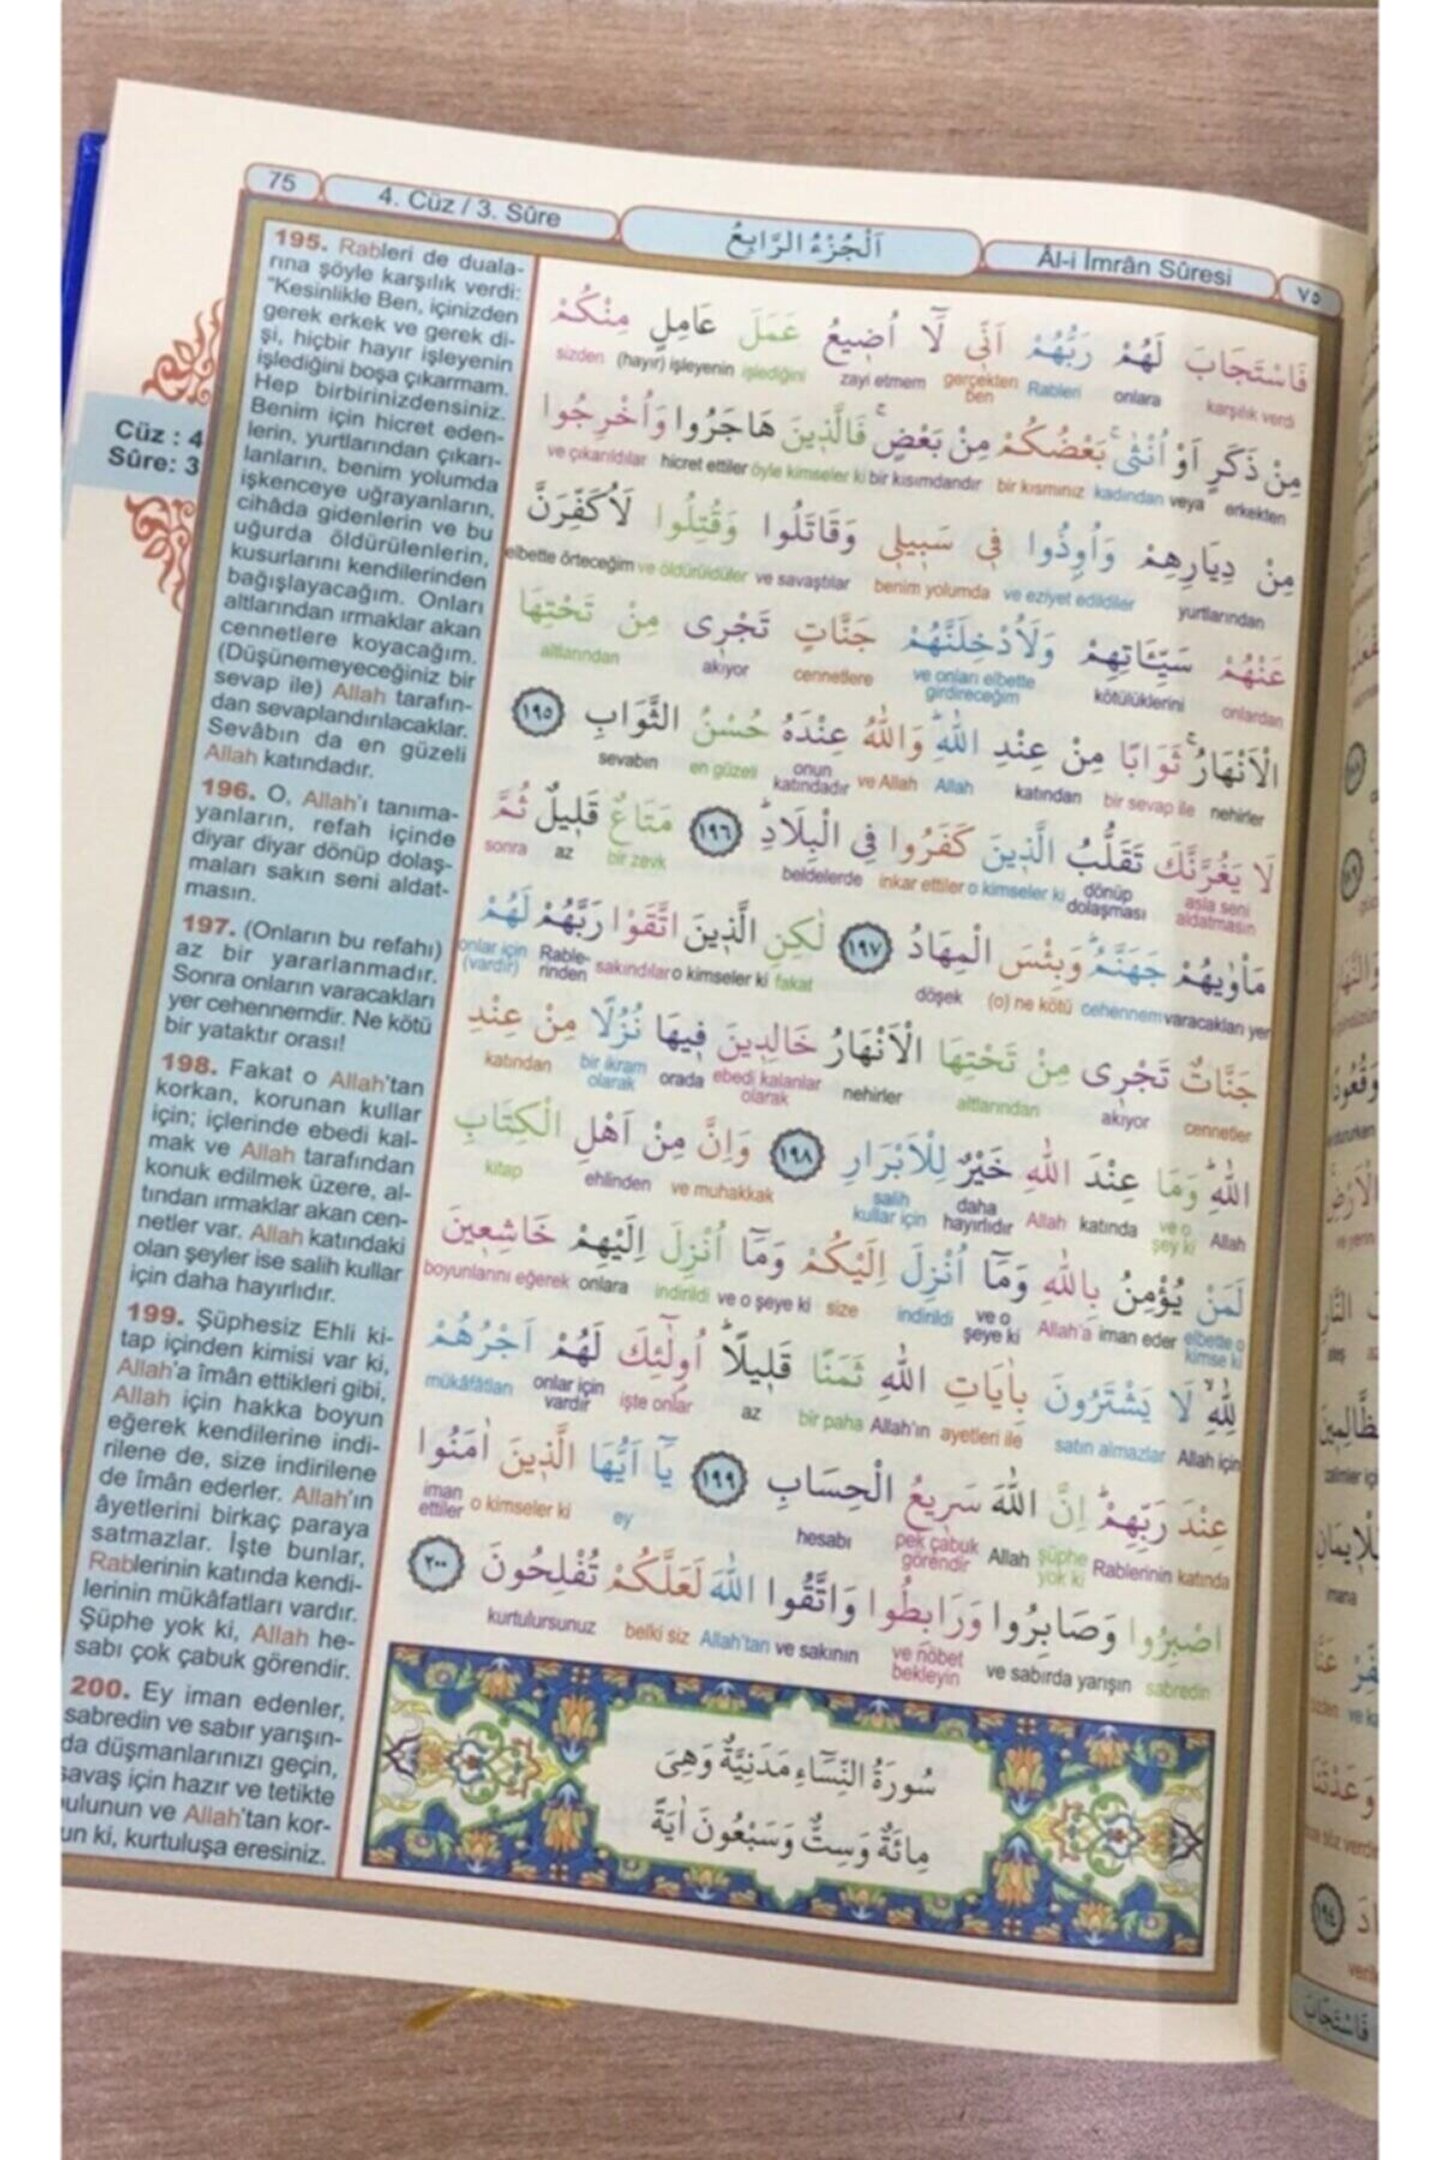 75
4. Cüz / 3. Sûre
اَلْجُزْءُ الرَّابِعُ
Âl-i İmrân Sûresi
٧٥
Cüz : 4
Sûre: 3
195. Rableri de duala-
rına şöyle karşılık verdi:
"Kesinlikle Ben, içinizden
gerek erkek ve gerek di-
şi, hiçbir hayır işleyenin
işlediğini boşa çıkarmam.
Hep birbirinizdensiniz.
Benim için hicret eden-
lerin, yurtlarından çıkarı-
lanların, benim yolumda
işkenceye uğrayanların,
cihâda gidenlerin ve bu
uğurda öldürülenlerin,
kusurlarını kendilerinden
bağışlayacağım. Onları
altlarından ırmaklar akan
cennetlere koyacağım.
(Düşünemeyeceğiniz bir
sevap ile) Allah tarafın-
dan sevaplandırılacaklar.
Sevâbın da en güzeli
Allah katındadır.
196. O, Allah'ı tanıma-
yanların, refah içinde
diyar diyar dönüp dolaş-
maları sakın seni aldat-
masın.
197. (Onların bu refahı)
az bir yararlanmadır.
Sonra onların varacakları
yer cehennemdir. Ne kötü
bir yataktır orası!
198. Fakat o Allah'tan
korkan, korunan kullar
için; içlerinde ebedi kal-
mak ve Allah tarafından
konuk edilmek üzere, al-
tından ırmaklar akan cen-
netler var. Allah katındaki
olan şeyler ise salih kullar
için daha hayırlıdır.
199. Şüphesiz Ehli ki-
tap içinden kimisi var ki,
Allah'a îmân ettikleri gibi,
Allah için hakka boyun
eğerek kendilerine indi-
rilene de, size indirilene
de îmân ederler. Allah'ın
âyetlerini birkaç paraya
satmazlar. İşte bunlar,
Rablerinin katında kendi-
lerinin mükâfatları vardır.
Şüphe yok ki, Allah he-
sabı çok çabuk görendir.
200. Ey iman edenler,
sabredin ve sabır yarışın-
da düşmanlarınızı geçin,
savaş için hazır ve tetikte
bulunun ve Allah'tan kor-
un ki, kurtuluşa eresiniz.
فَاسْتَجَابَ لَهُمْ رَبُّهُمْ اَنّ۪ي لَٓا اُض۪يعُ عَمَلَ عَامِلٍ مِنْكُمْ
karşılık verdi onlara Rableri gerçekten ben zayi etmem işlediğini (hayır) işleyenin sizden
مِنْ ذَكَرٍ اَوْ اُنْثٰىۚ بَعْضُكُمْ مِنْ بَعْضٍۚ فَالَّذ۪ينَ هَاجَرُوا وَاُخْرِجُوا
erkekten veya kadından bir kısmınız bir kısımdandır öyle kimseler ki hicret ettiler ve çıkarıldılar
مِنْ دِيَارِهِمْ وَاُو۫ذُوا ف۪ي سَب۪يل۪ي وَقَاتَلُوا وَقُتِلُوا لَاُكَفِّرَنَّ
yurtlarından ve eziyet edildiler benim yolumda ve savaştılar ve öldürüldüler elbette örteceğim
عَنْهُمْ سَيِّـَٔاتِهِمْ وَلَاُدْخِلَنَّهُمْ جَنَّاتٍ تَجْر۪ي مِنْ تَحْتِهَا
onlardan kötülüklerini ve onları elbette girdireceğim cennetlere akıyor altlarından
الْاَنْهَارُۚ ثَوَابًا مِنْ عِنْدِ اللّٰهِؕ وَاللّٰهُ عِنْدَهُ حُسْنُ الثَّوَابِ ١٩٥
nehirler bir sevap ile katından Allah ve Allah onun katındadır en güzeli sevabın
لَا يَغُرَّنَّكَ تَقَلُّبُ الَّذ۪ينَ كَفَرُوا فِي الْبِلَادِؕ ١٩٦ مَتَاعٌ قَل۪يلٌ ثُمَّ
asla seni aldatmasın dönüp dolaşması o kimseler ki inkar ettiler beldelerde bir zevk az sonra
مَأْوٰيهُمْ جَهَنَّمُؕ وَبِئْسَ الْمِهَادُ ١٩٧ لٰكِنِ الَّذ۪ينَ اتَّقَوْا رَبَّهُمْ لَهُمْ
varacakları yer cehennem (o) ne kötü döşek fakat o kimseler ki sakındılar Rable-rinden onlar için (vardır)
جَنَّاتٌ تَجْر۪ي مِنْ تَحْتِهَا الْاَنْهَارُ خَالِد۪ينَ ف۪يهَا نُزُلًا مِنْ عِنْدِ
cennetler akıyor altlarından nehirler ebedi kalanlar olarak orada bir ikram olarak katından
اللّٰهِؕ وَمَا عِنْدَ اللّٰهِ خَيْرٌ لِلْاَبْرَارِ ١٩٨ وَاِنَّ مِنْ اَهْلِ الْكِتَابِ
Allah ve o şey ki katında Allah daha hayırlıdır salih kullar için ve muhakkak ehlinden kitap
لَمَنْ يُؤْمِنُ بِاللّٰهِ وَمَٓا اُنْزِلَ اِلَيْكُمْ وَمَٓا اُنْزِلَ اِلَيْهِمْ خَاشِع۪ينَ
elbette o kimse ki iman eder Allah'a ve o şeye ki indirildi size ve o şeye ki indirildi onlara boyunlarını eğerek
لِلّٰهِۙ لَا يَشْتَرُونَ بِاٰيَاتِ اللّٰهِ ثَمَنًا قَل۪يلًاؕ اُو۬لٰٓئِكَ لَهُمْ اَجْرُهُمْ
Allah için satın almazlar ayetleri ile Allah'ın bir paha az işte onlar onlar için vardır mükâfâtları
عِنْدَ رَبِّهِمْؕ اِنَّ اللّٰهَ سَر۪يعُ الْحِسَابِ ١٩٩ يَٓا اَيُّهَا الَّذ۪ينَ اٰمَنُوا
katında Rablerinin şüphe yok ki Allah pek çabuk görendir hesabı ey o kimseler ki iman ettiler
اصْبِرُوا وَصَابِرُوا وَرَابِطُوا وَاتَّقُوا اللّٰهَ لَعَلَّكُمْ تُفْلِحُونَ ٢٠٠
sabredin ve sabırda yarışın ve nöbet bekleyin ve sakının Allah'tan belki siz kurtulursunuz
سُورَةُ النِّسَٓاءِ مَدَنِيَّةٌ وَهِيَ
مِائَةٌ وَسِتٌّ وَسَبْعُونَ اٰيَةً
فَاسْتَجَابَ